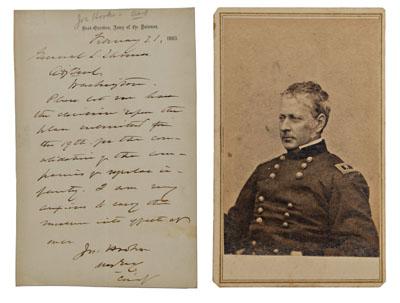 Jos. Hooker
Head-Quarters, Army of the Potomac,
February 21, 1863.
General L. Thomas
Washington.
Please let me have
the decision upon the
plan submitted for
the 19th for the con-
solidation of the com-
panies of regular in-
fantry. I am very
anxious to carry the
measure into effect at
once
Jos. Hooker